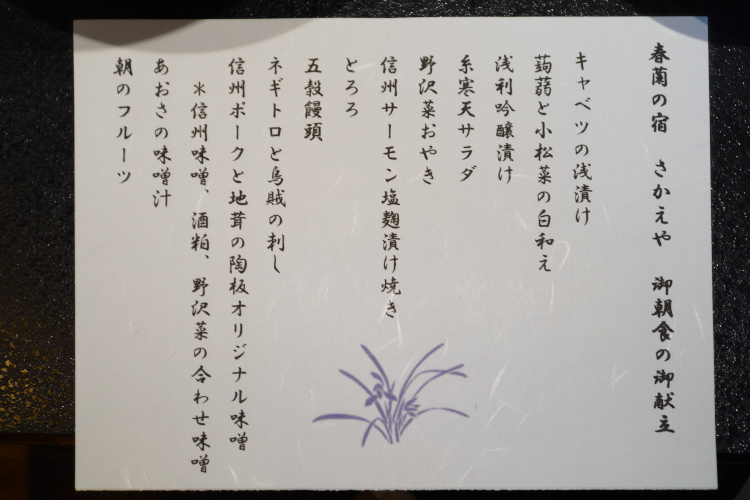 春蘭の宿 さかえや 御朝食の御献立
キャベツの浅漬け
蒟蒻と小松菜の白和え
浅利吟醸漬け
糸寒天サラダ
野沢菜おやき
信州サーモン塩麹漬け焼き
とろろ
五穀饅頭
ネギトロと烏賊の刺し
信州ポークと地茸の陶板オリジナル味噌
＊信州味噌、酒粕、野沢菜の合わせ味噌
あおさの味噌汁
朝のフルーツ